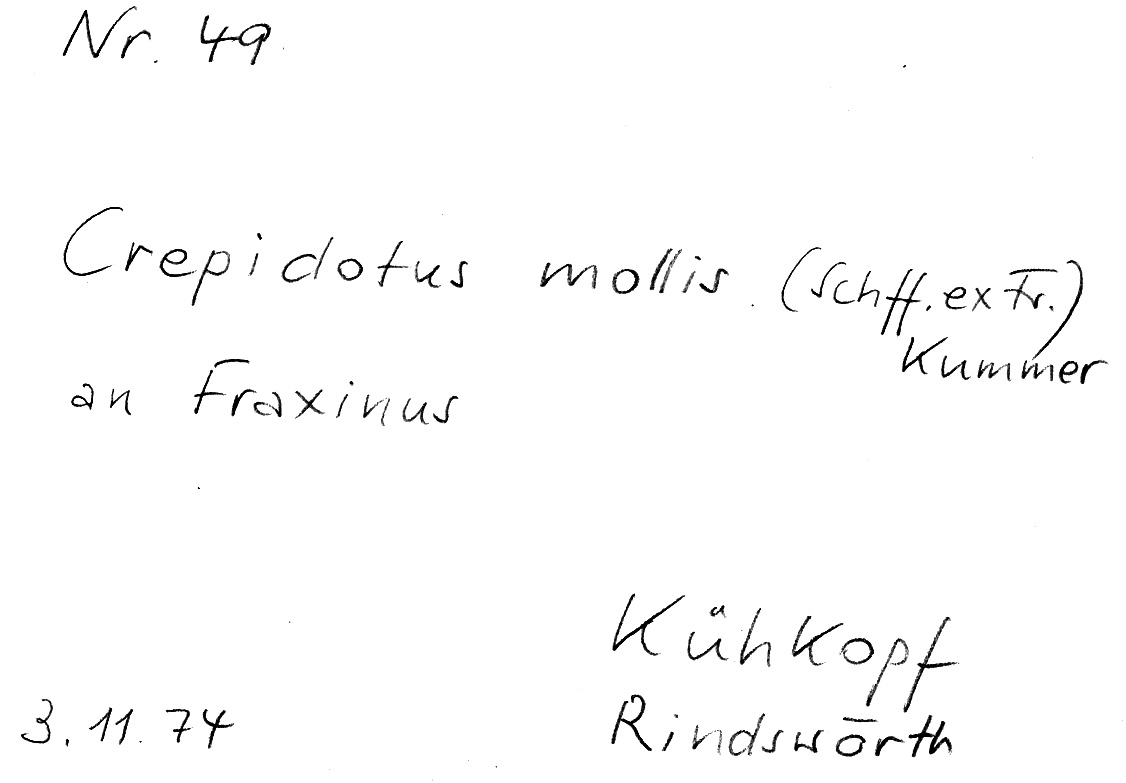 Nr. 49
Crepidotus mollis (Schff. ex Fr.)
Kummer
an Fraxinus
Kühkopf
3.11.74 Rindswörth